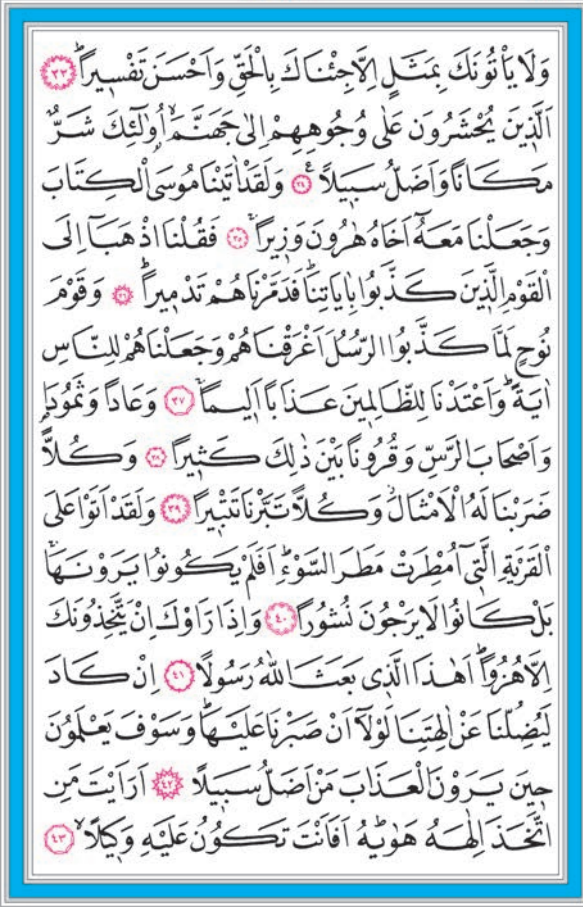 وَلَا يَأْتُونَكَ بِمَثَلٍ اِلَّا جِئْنَاكَ بِالْحَقِّ وَاَحْسَنَ تَفْسٖيراًؕ ﴿٣٣﴾
اَلَّذٖينَ يُحْشَرُونَ عَلٰى وُجُوهِهِمْ اِلٰى جَهَنَّمَۙ اُو۬لٰٓئِكَ شَرٌّ
مَكَاناً وَاَضَلُّ سَبٖيلاًࣖ ﴿٣٤﴾ وَلَقَدْ اٰتَيْنَا مُوسَى الْكِتَابَ
وَجَعَلْنَا مَعَهُٓ اَخَاهُ هٰرُونَ وَزٖيراًۚ ﴿٣٥﴾ فَقُلْنَا اذْهَبَٓا اِلَى
الْقَوْمِ الَّذٖينَ كَذَّبُوا بِاٰيَاتِنَاؕ فَدَمَّرْنَاهُمْ تَدْمٖيراًؕ ﴿٣٦﴾ وَقَوْمَ
نُوحٍ لَمَّا كَذَّبُوا الرُّسُلَ اَغْرَقْنَاهُمْ وَجَعَلْنَاهُمْ لِلنَّاسِ
اٰيَةًؕ وَاَعْتَدْنَا لِلظَّالِمٖينَ عَذَاباً اَلٖيماًۚ ﴿٣٧﴾ وَعَاداً وَثَمُودَا۬
وَاَصْحَابَ الرَّسِّ وَقُرُوناً بَيْنَ ذٰلِكَ كَثٖيراً ﴿٣٨﴾ وَكُلاًّ
ضَرَبْنَا لَهُ الْاَمْثَالَؗ وَكُلاًّ تَبَّرْنَا تَتْبٖيراً ﴿٣٩﴾ وَلَقَدْ اَتَوْا عَلَى
الْقَرْيَةِ الَّتٖٓي اُمْطِرَتْ مَطَرَ السَّوْءِؕ اَفَلَمْ يَكُونُوا يَرَوْنَهَاۚ
بَلْ كَانُوا لَا يَرْجُونَ نُشُوراً ﴿٤٠﴾ وَاِذَا رَاَوْكَ اِنْ يَتَّخِذُونَكَ
اِلَّا هُزُواًؕ اَهٰذَا الَّذٖي بَعَثَ اللّٰهُ رَسُولاً ﴿٤١﴾ اِنْ كَادَ
لَيُضِلُّنَا عَنْ اٰلِهَتِنَا لَوْلَٓا اَنْ صَبَرْنَا عَلَيْهَاؕ وَسَوْفَ يَعْلَمُونَ
حٖينَ يَرَوْنَ الْعَذَابَ مَنْ اَضَلُّ سَبٖيلاً ﴿٤٢﴾ اَرَاَيْتَ مَنِ
اتَّخَذَ اِلٰهَهُ هَوٰيهُؕ اَفَاَنْتَ تَكُونُ عَلَيْهِ وَكٖيلاًۙ ﴿٤٣﴾